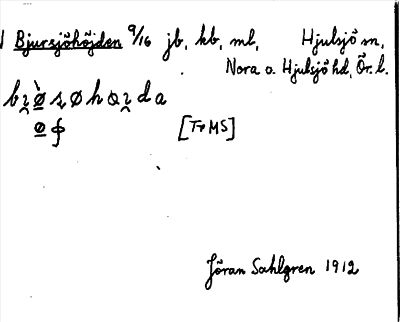 Bjursjöhöjden 9/16 jb, kb, ml, Hjulsjö sn,
Nora o. Hjulsjö hd, Ör. l.
[Tr MS]
Jöran Sahlgren 1912